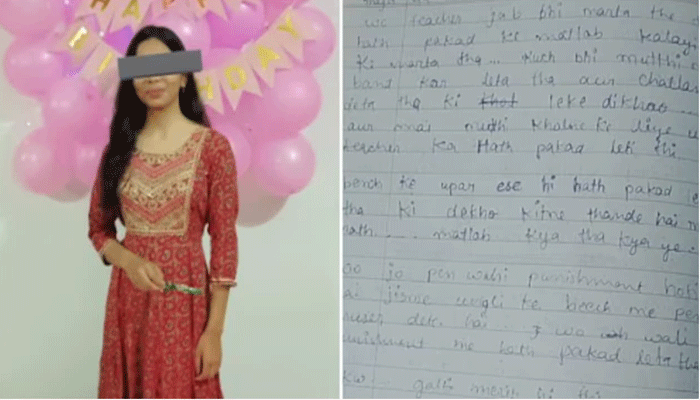 HAPPY
BIRTHDAY
wo teacher jab bhi marta tha
hath pakad ke matlab kalayi
ki marta tha... kuch bhi mutthi
band kar leta tha aur challa
deta tha ki leke dikhao...
aur mai mutthi kholne ke liye
teacher ka hath pakad leti thi
bench ke upar ese hi hath pakad le
tha ki dekho kitne thande hai
hath .... matlab kya tha kya ye
jo pen wahi punishment hoti
jisme ungli ke beech me pen
dete hai .. wo wali
me hath pakad leta tha
galti meri hi thi